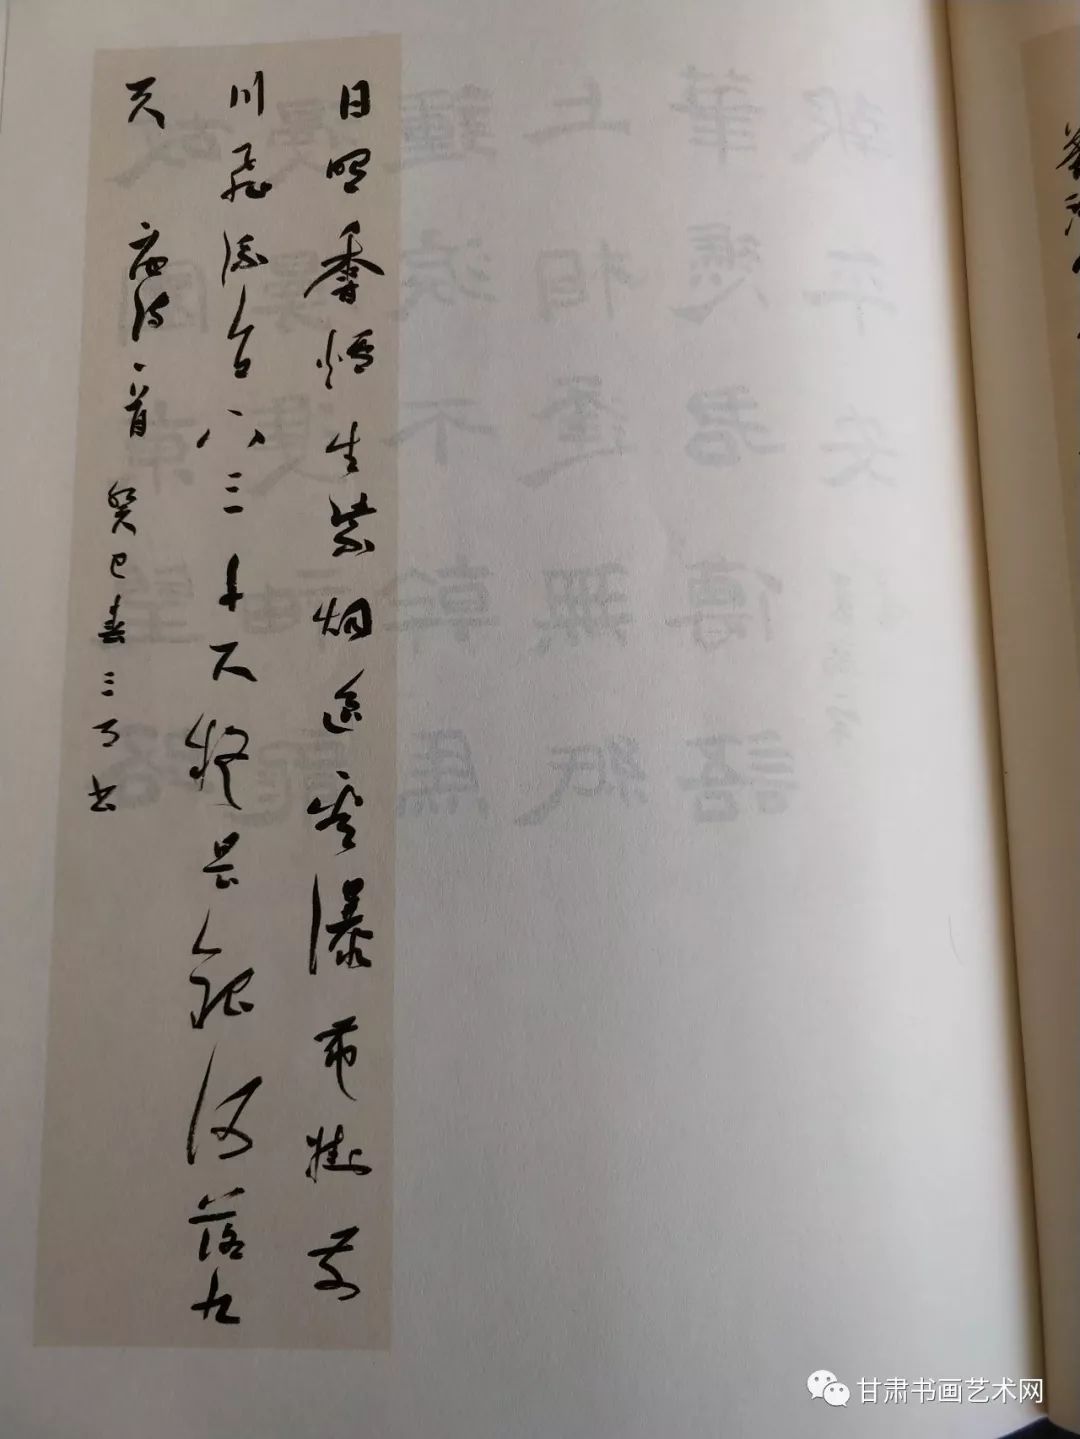 日照香爐生紫烟遥看瀑布挂前
川飛流直下三千尺疑是銀河落九
天 唐诗一首 癸巳春三月书
甘肃书画艺术网